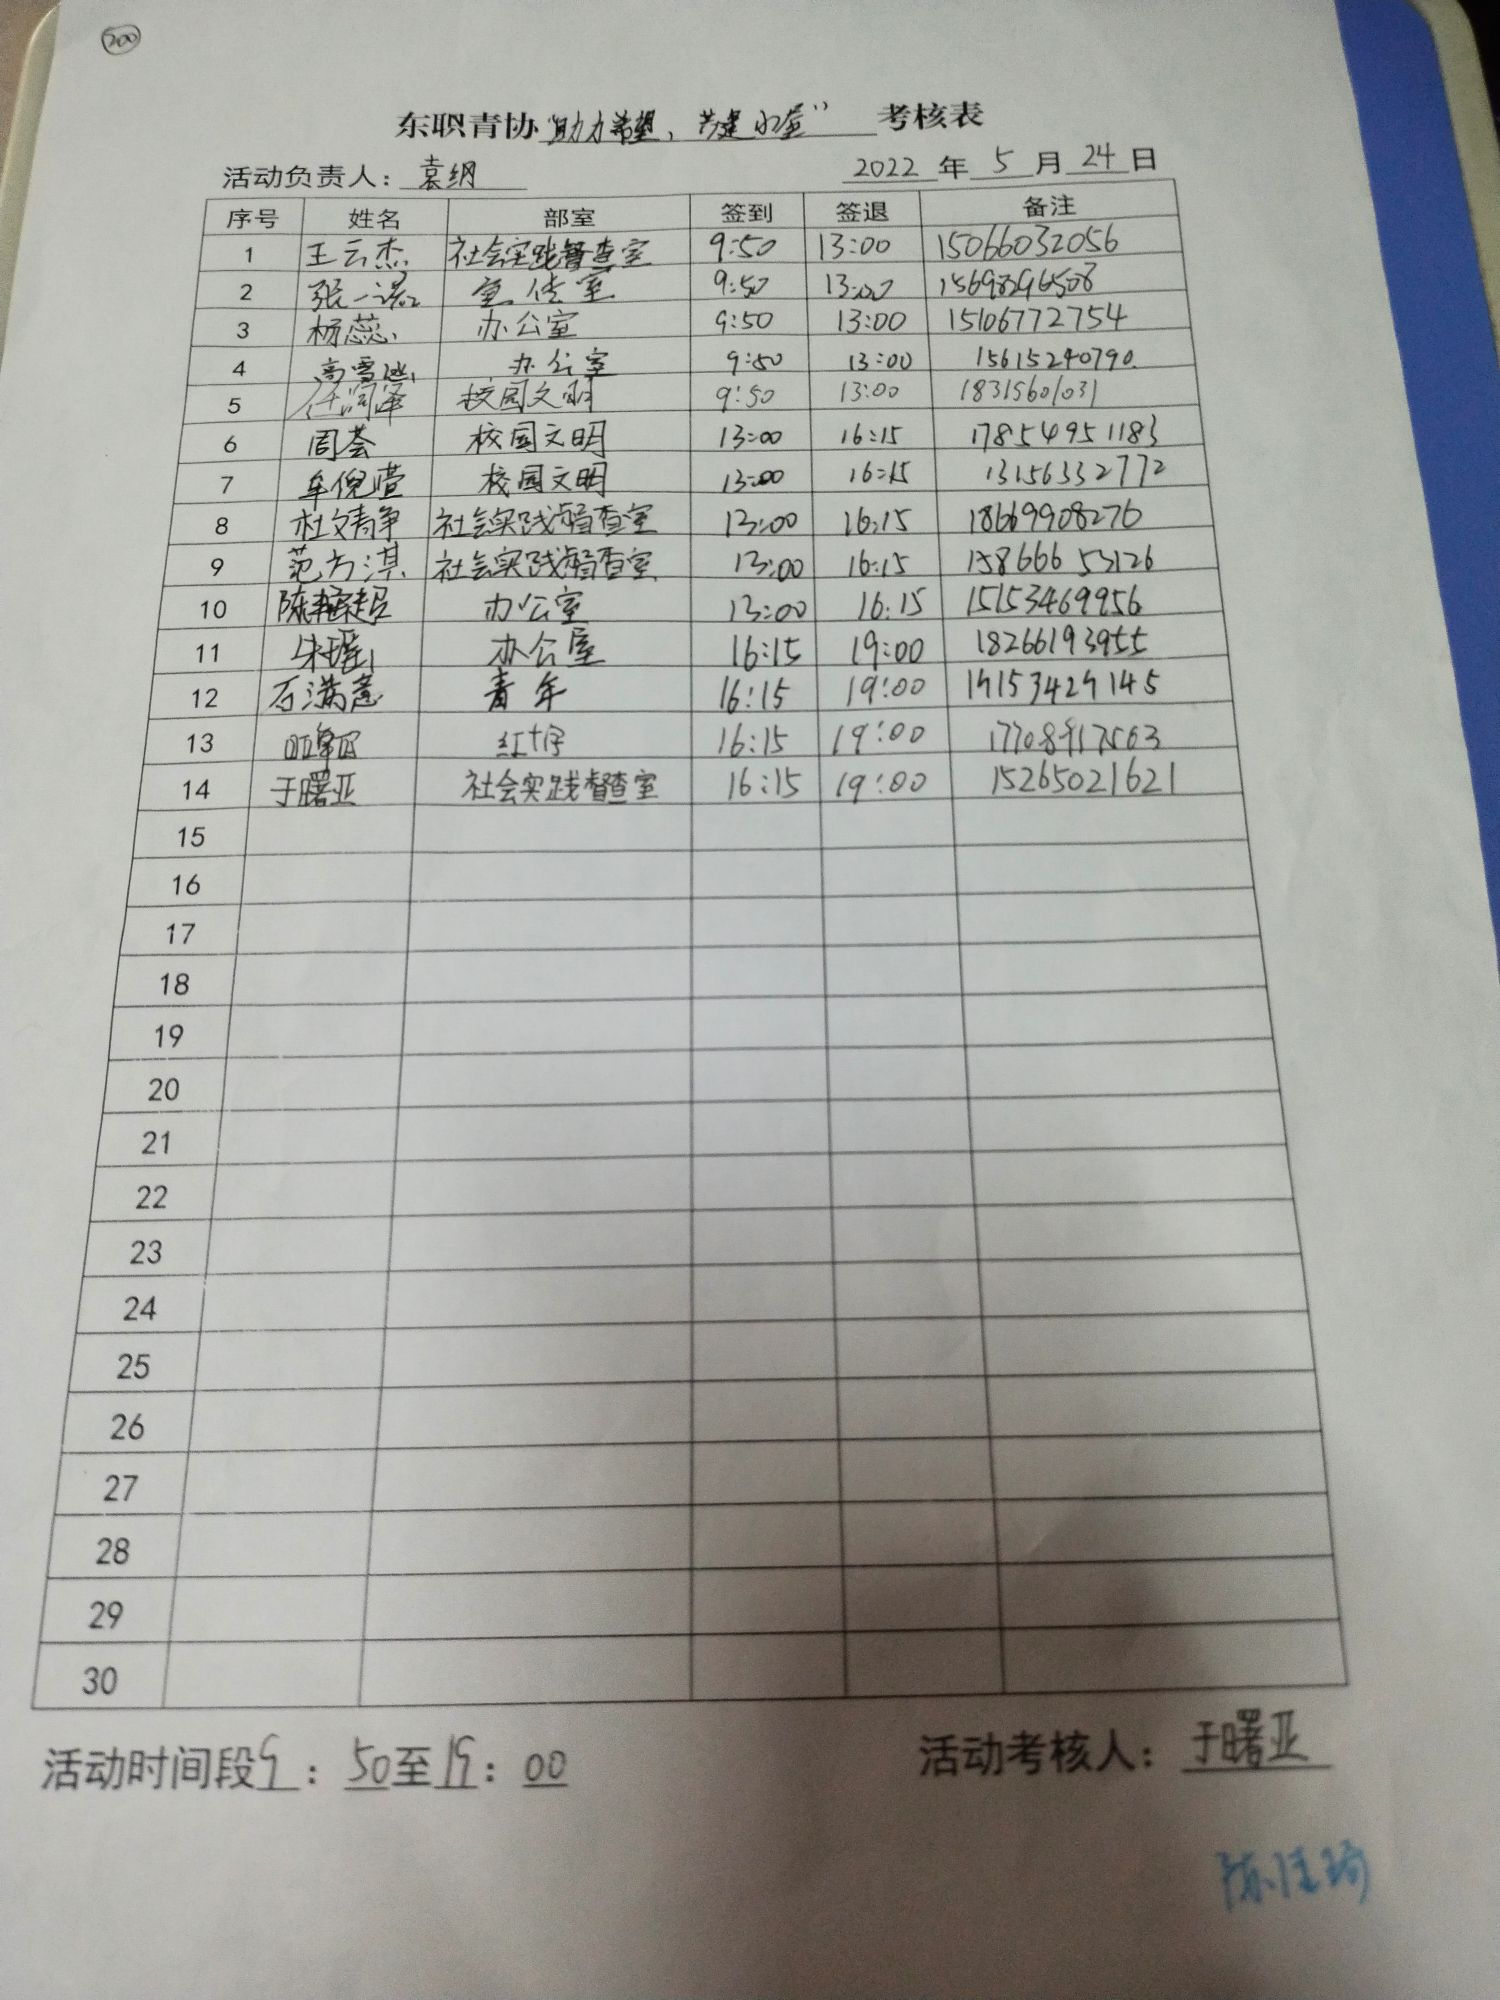 200
东职青协"助力希望，共建小屋"考核表
活动负责人：袁纲 2022年5月24日
序号 姓名 部室 签到 签退 备注
1 王云杰 社会实践督查室 9:50 13:00 15066032056
2 张一诺 宣传室 9:50 13:00
3 杨蕊 办公室 9:50 13:00 15106772754
4 高雪 办公室 9:50 13:00 15615240790
5 任润泽 校园文明 9:50 13:00 18315601031
6 周荟 校园文明 13:00 16:15 17854951183
7 牟倪萱 校园文明 13:00 16:15 13156332772
8 杜文静 社会实践督查室 13:00 16:15 18669908276
9 范方淇 社会实践督查室 13:00 16:15 15866653126
10 陈超 办公室 13:00 16:15 15153469956
11 朱瑶 办公室 16:15 19:00 18266193955
12 石满意 青年 16:15 19:00
13 红十字 16:15 19:00
14 于曙亚 社会实践督查室 16:15 19:00 15265021621
15
16
17
18
19
20
21
22
23
24
25
26
27
28
29
30
活动时间段9：50至19：00 活动考核人：于曙亚
陈佳琦